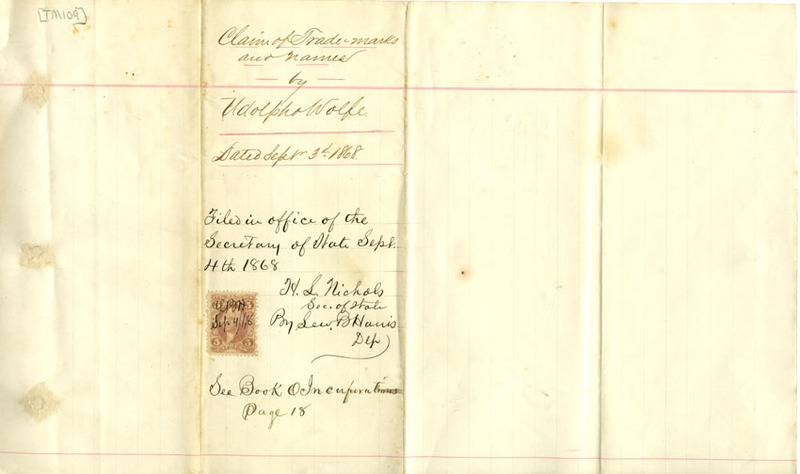 [TM109]
Claim of Trade-marks
and names
by
Udolpho Wolfe.
Dated Septr 3d 1868.
Filed in office of the
Secretary of State Sept.
4th 1868
H. L. Nichols
Sec. of State
By Lew. B Harris
Dep
LBH
Sep 4/68
5 5
See Book O Incorporations
Page 18